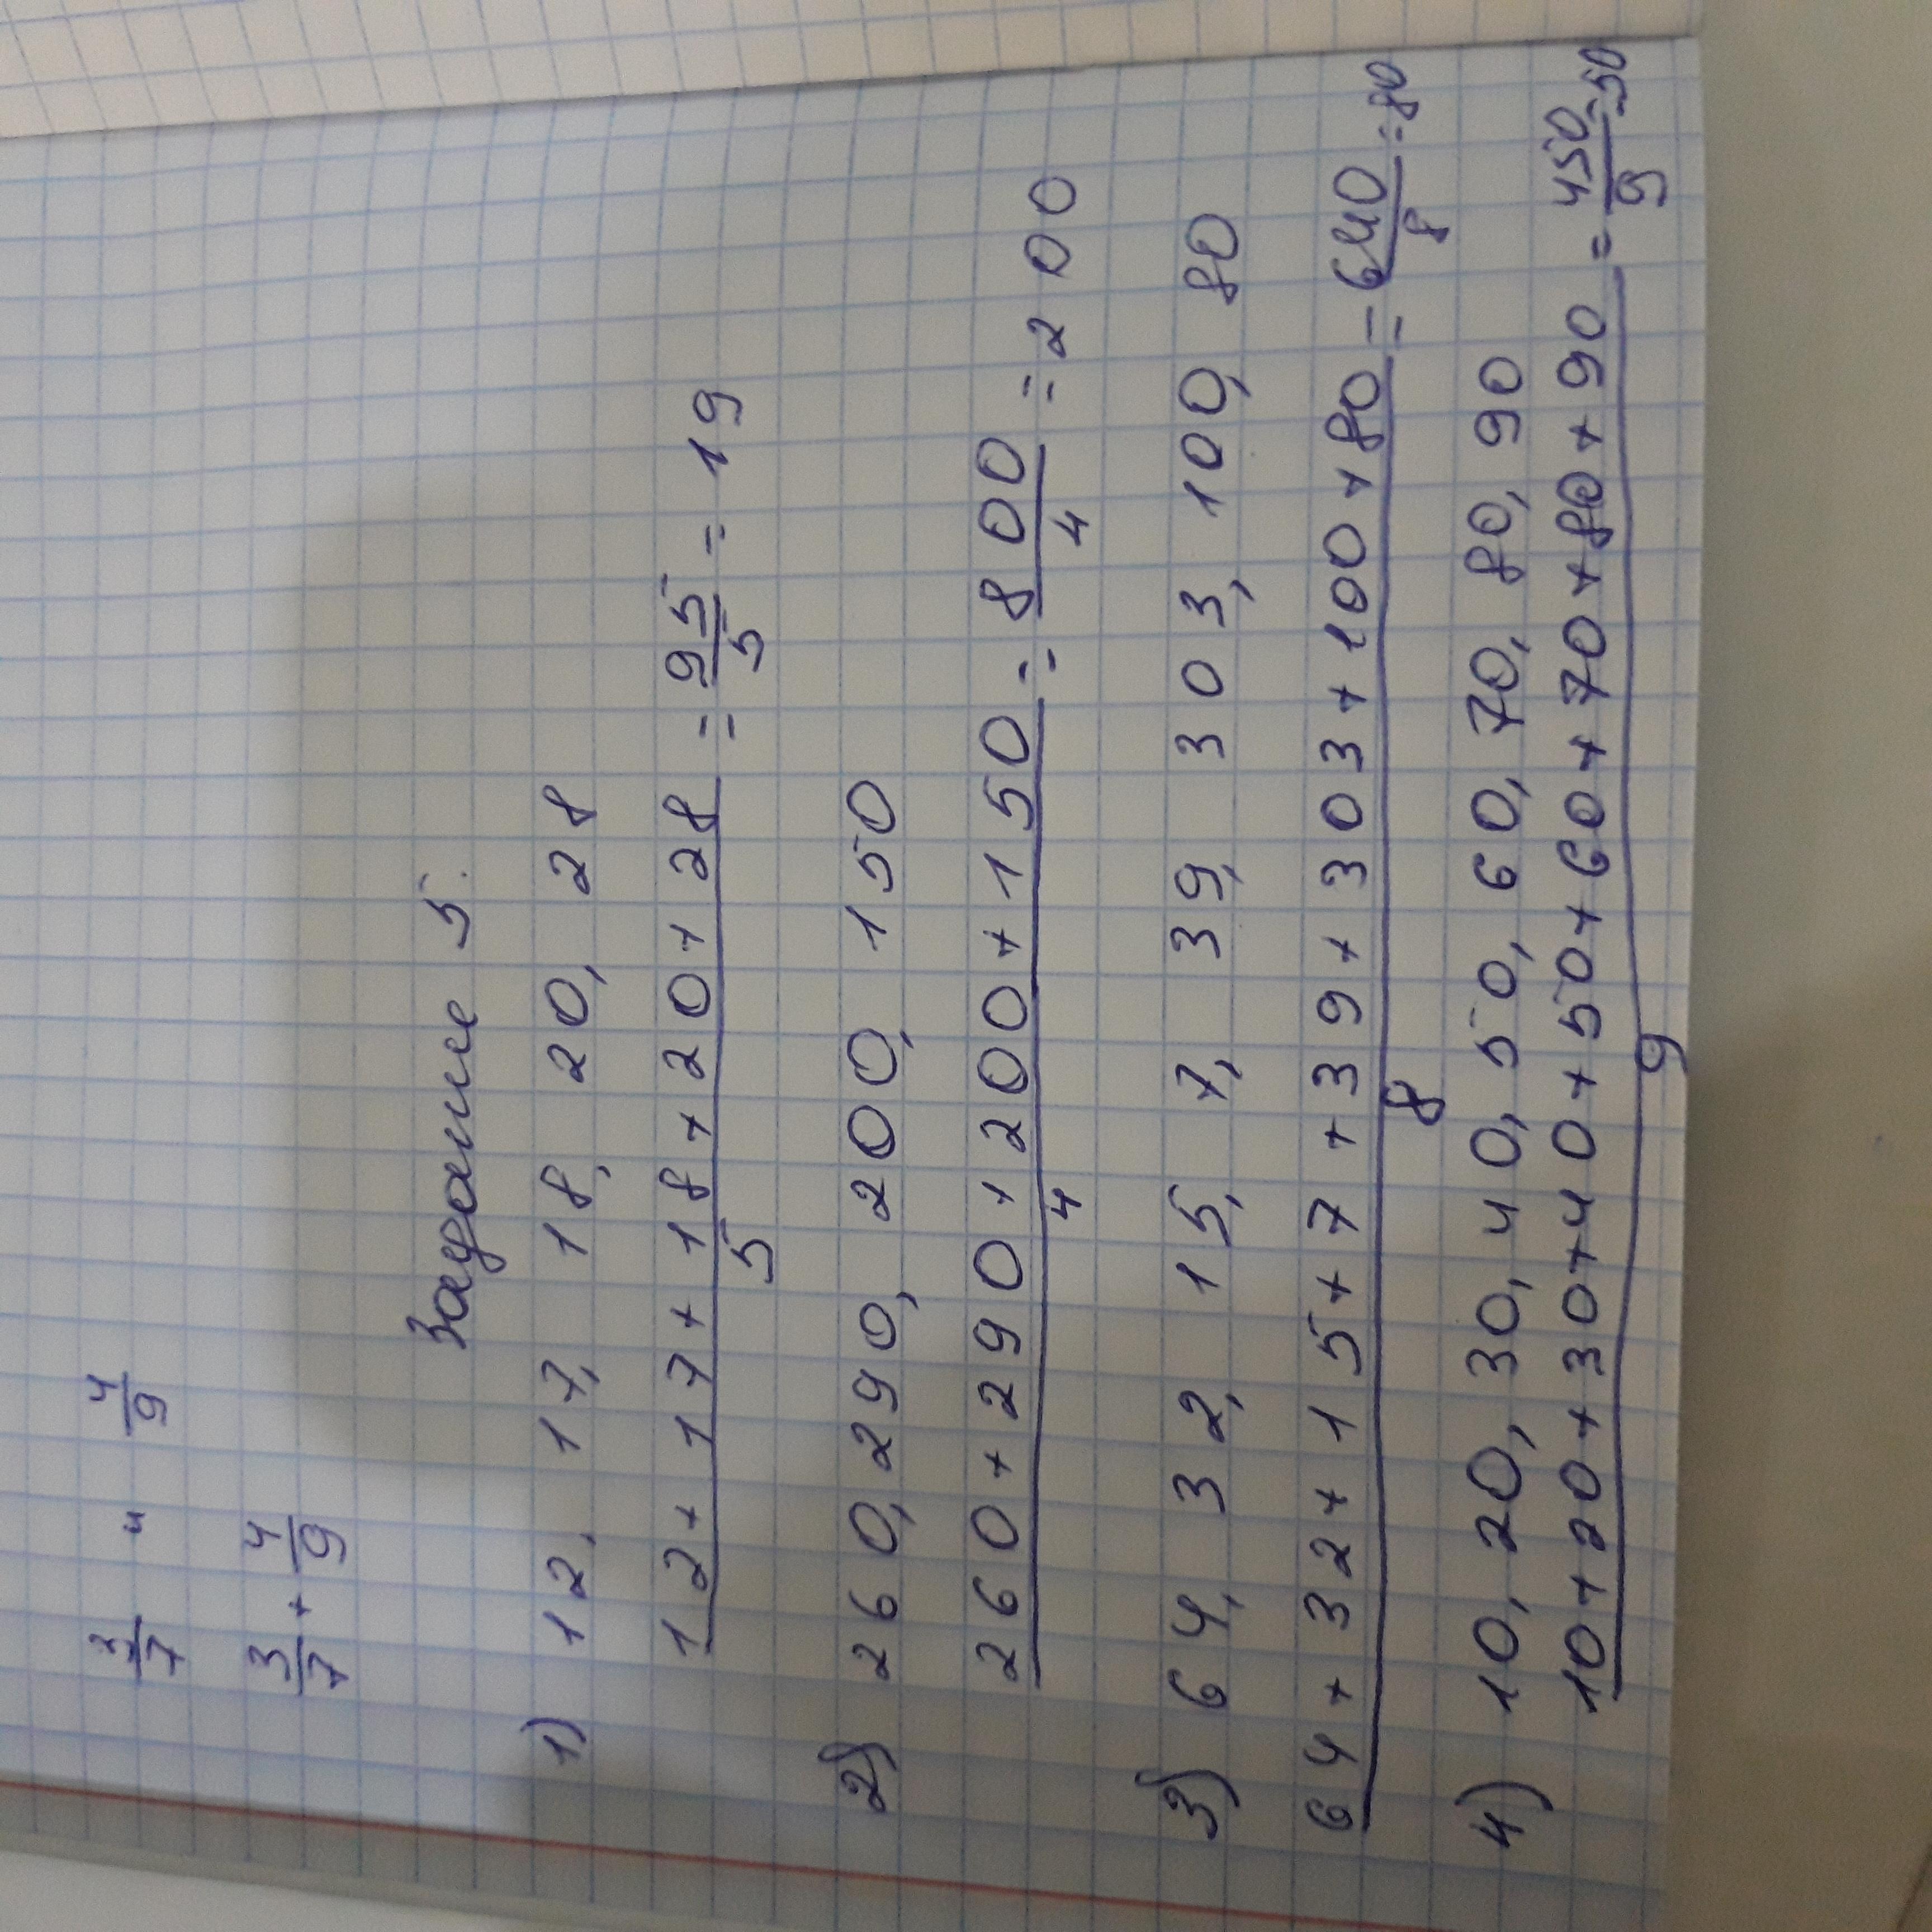 3/7 и 4/9
3/7 + 4/9
Задание 5.
1) 12, 17, 18, 20, 28
12+17+18+20+28/5 = 95/5 = 19
2) 260, 290, 200, 150
260+290+200+150/4 = 800/4 = 200
3) 64, 32, 15, 7, 39, 303, 100, 80
64+32+15+7+39+303+100+80/8 = 640/8 = 80
4) 10, 20, 30, 40, 50, 60, 70, 80, 90
10+20+30+40+50+60+70+80+90/9 = 450/9 = 50